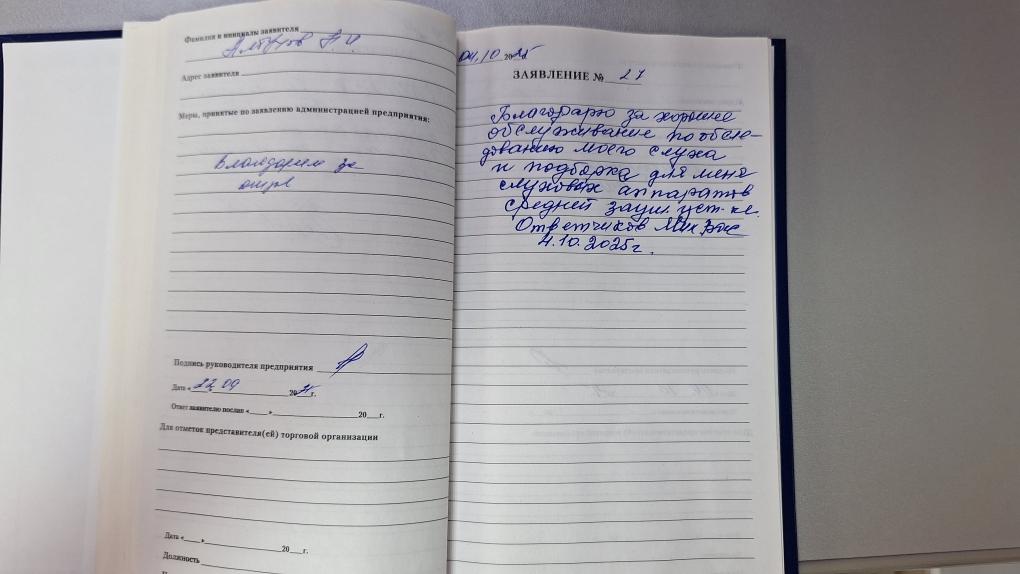 Фамилия и инициалы заявителя
Адрес заявителя
Меры, принятые по заявлению администрацией предприятия:
Благодарим за
отзыв
Подпись руководителя предприятия
Дата « 22 09 20 г.
Ответ заявителю послан «___» 20___г.
Для отметок представителя(ей) торговой организации
Дата «___» 20___г.
Должность
04.10 2025
ЗАЯВЛЕНИЕ № 27
Благодарю за хорошее
обслуживание по обсле-
дованию моего слуха
и подборка для меня
слуховых аппаратов
средней
Ответчиков
4.10.2025г.